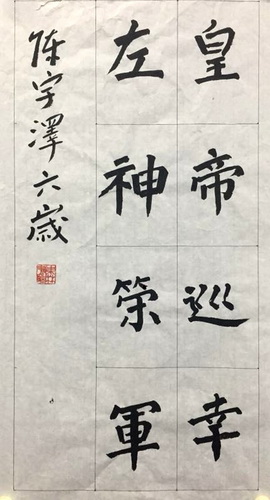 皇帝巡幸
左神策軍
陈宇澤六歲